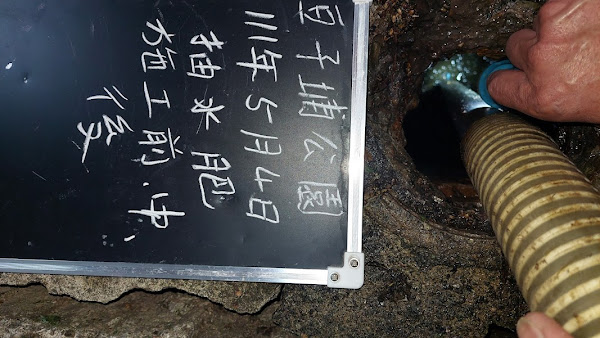 豆子埔公園
111年5月4日
抽水肥
施工前.中.
後